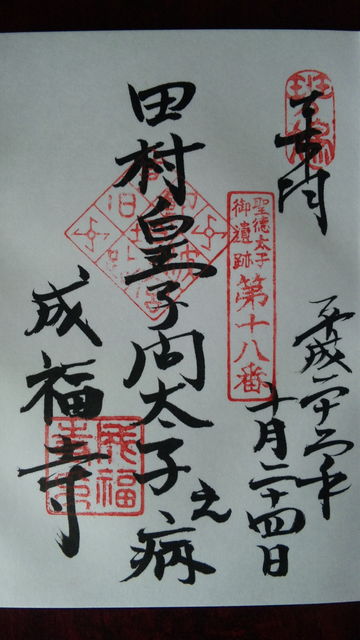 斑鳩
平成二十三年
十月二十四日
聖徳太子
御遺跡
第十八番
田村皇子問太子之病
成福寺